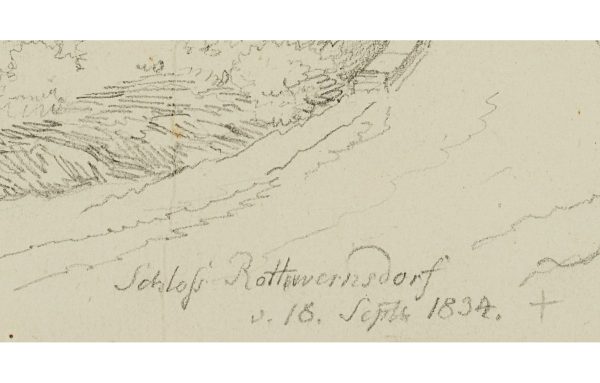 Schloß Rottwernsdorf
d. 18. Septbr 1834. +